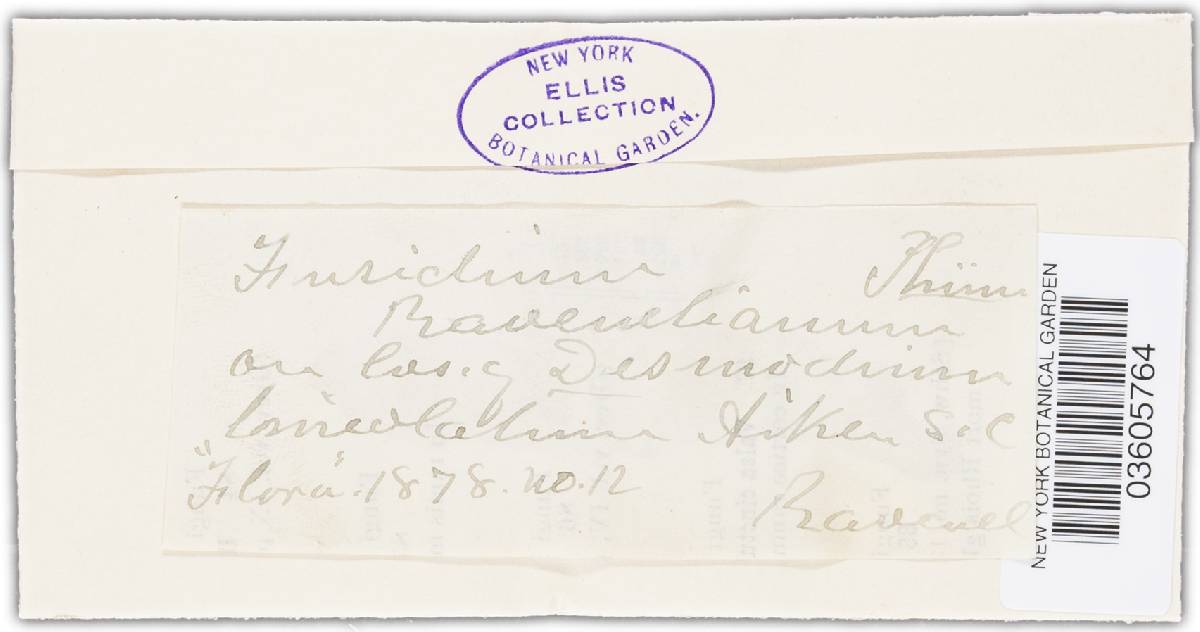 NEW YORK
ELLIS
COLLECTION
BOTANICAL GARDEN.
Fusidium Thüm
Ravenelianum
on lvs. of Desmodium
lineolatum Aiken S.C
"Flora". 1878. no. 12
Ravenel
NEW YORK BOTANICAL GARDEN
03605764